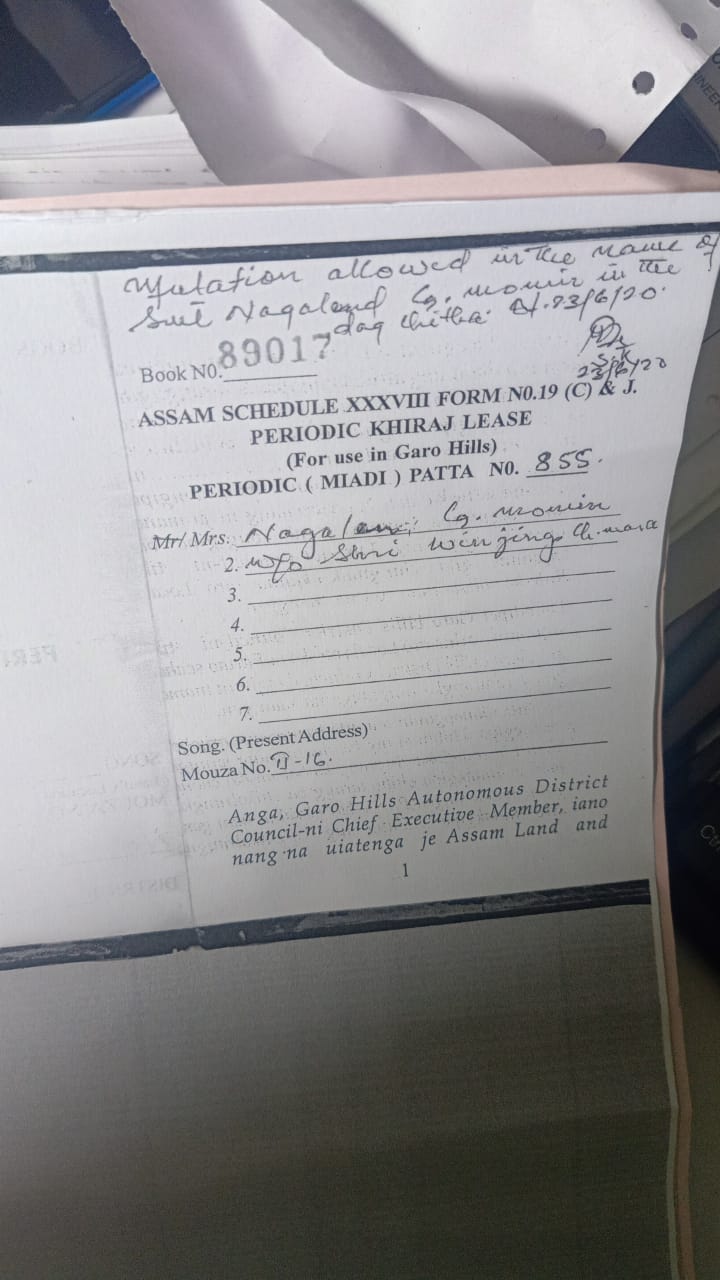 Mutation allowed in the name of
Smt Nagaland Cg. momin in the
dag chitha. 23/6/20.
S.K
23/6/20
Book N0. 89017
ASSAM SCHEDULE XXXVIII FORM N0.19 (C) & J.
PERIODIC KHIRAJ LEASE
(For use in Garo Hills)
PERIODIC ( MIADI ) PATTA N0. 855.
Mr/ Mrs. Cg. momin
2. w/o Shri Ch. marak
3.
4.
5.
6.
7.
Song. (Present Address)
Mouza No. II-16.
Anga, Garo Hills Autonomous District
Council-ni Chief Executive Member, iano
nang·na uiatenga je Assam Land and
1